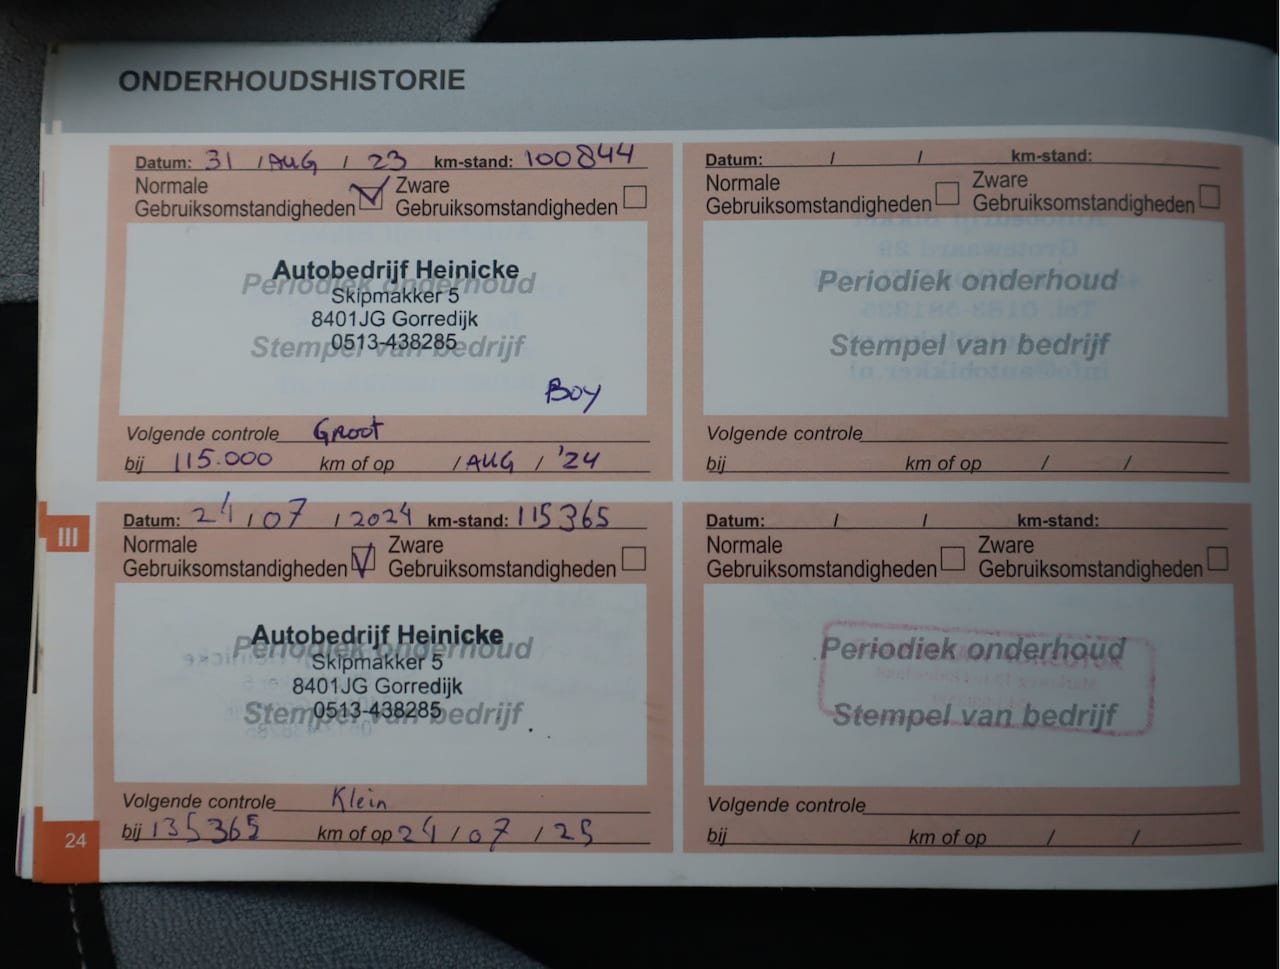 ONDERHOUDSHISTORIE
Datum: 31 / AUG / 23 km-stand: 100844
Normale Gebruiksomstandigheden Zware Gebruiksomstandigheden
Periodiek onderhoud
Autobedrijf Heinicke
Skipmakker 5
8401JG Gorredijk
0513-438285
Stempel van bedrijf
Boy
Volgende controle Groot
bij 115.000 km of op / AUG / '24
Datum: 24 / 07 / 2024 km-stand: 115365
Normale Gebruiksomstandigheden Zware Gebruiksomstandigheden
Periodiek onderhoud
Autobedrijf Heinicke
Skipmakker 5
8401JG Gorredijk
0513-438285
Stempel van bedrijf
Volgende controle Klein
bij 135365 km of op 24 / 07 / 25
Datum: / / km-stand:
Normale Gebruiksomstandigheden Zware Gebruiksomstandigheden
Periodiek onderhoud
Stempel van bedrijf
Volgende controle
bij km of op / /
Datum: / / km-stand:
Normale Gebruiksomstandigheden Zware Gebruiksomstandigheden
Periodiek onderhoud
Stempel van bedrijf
Volgende controle
bij km of op / /
III
24